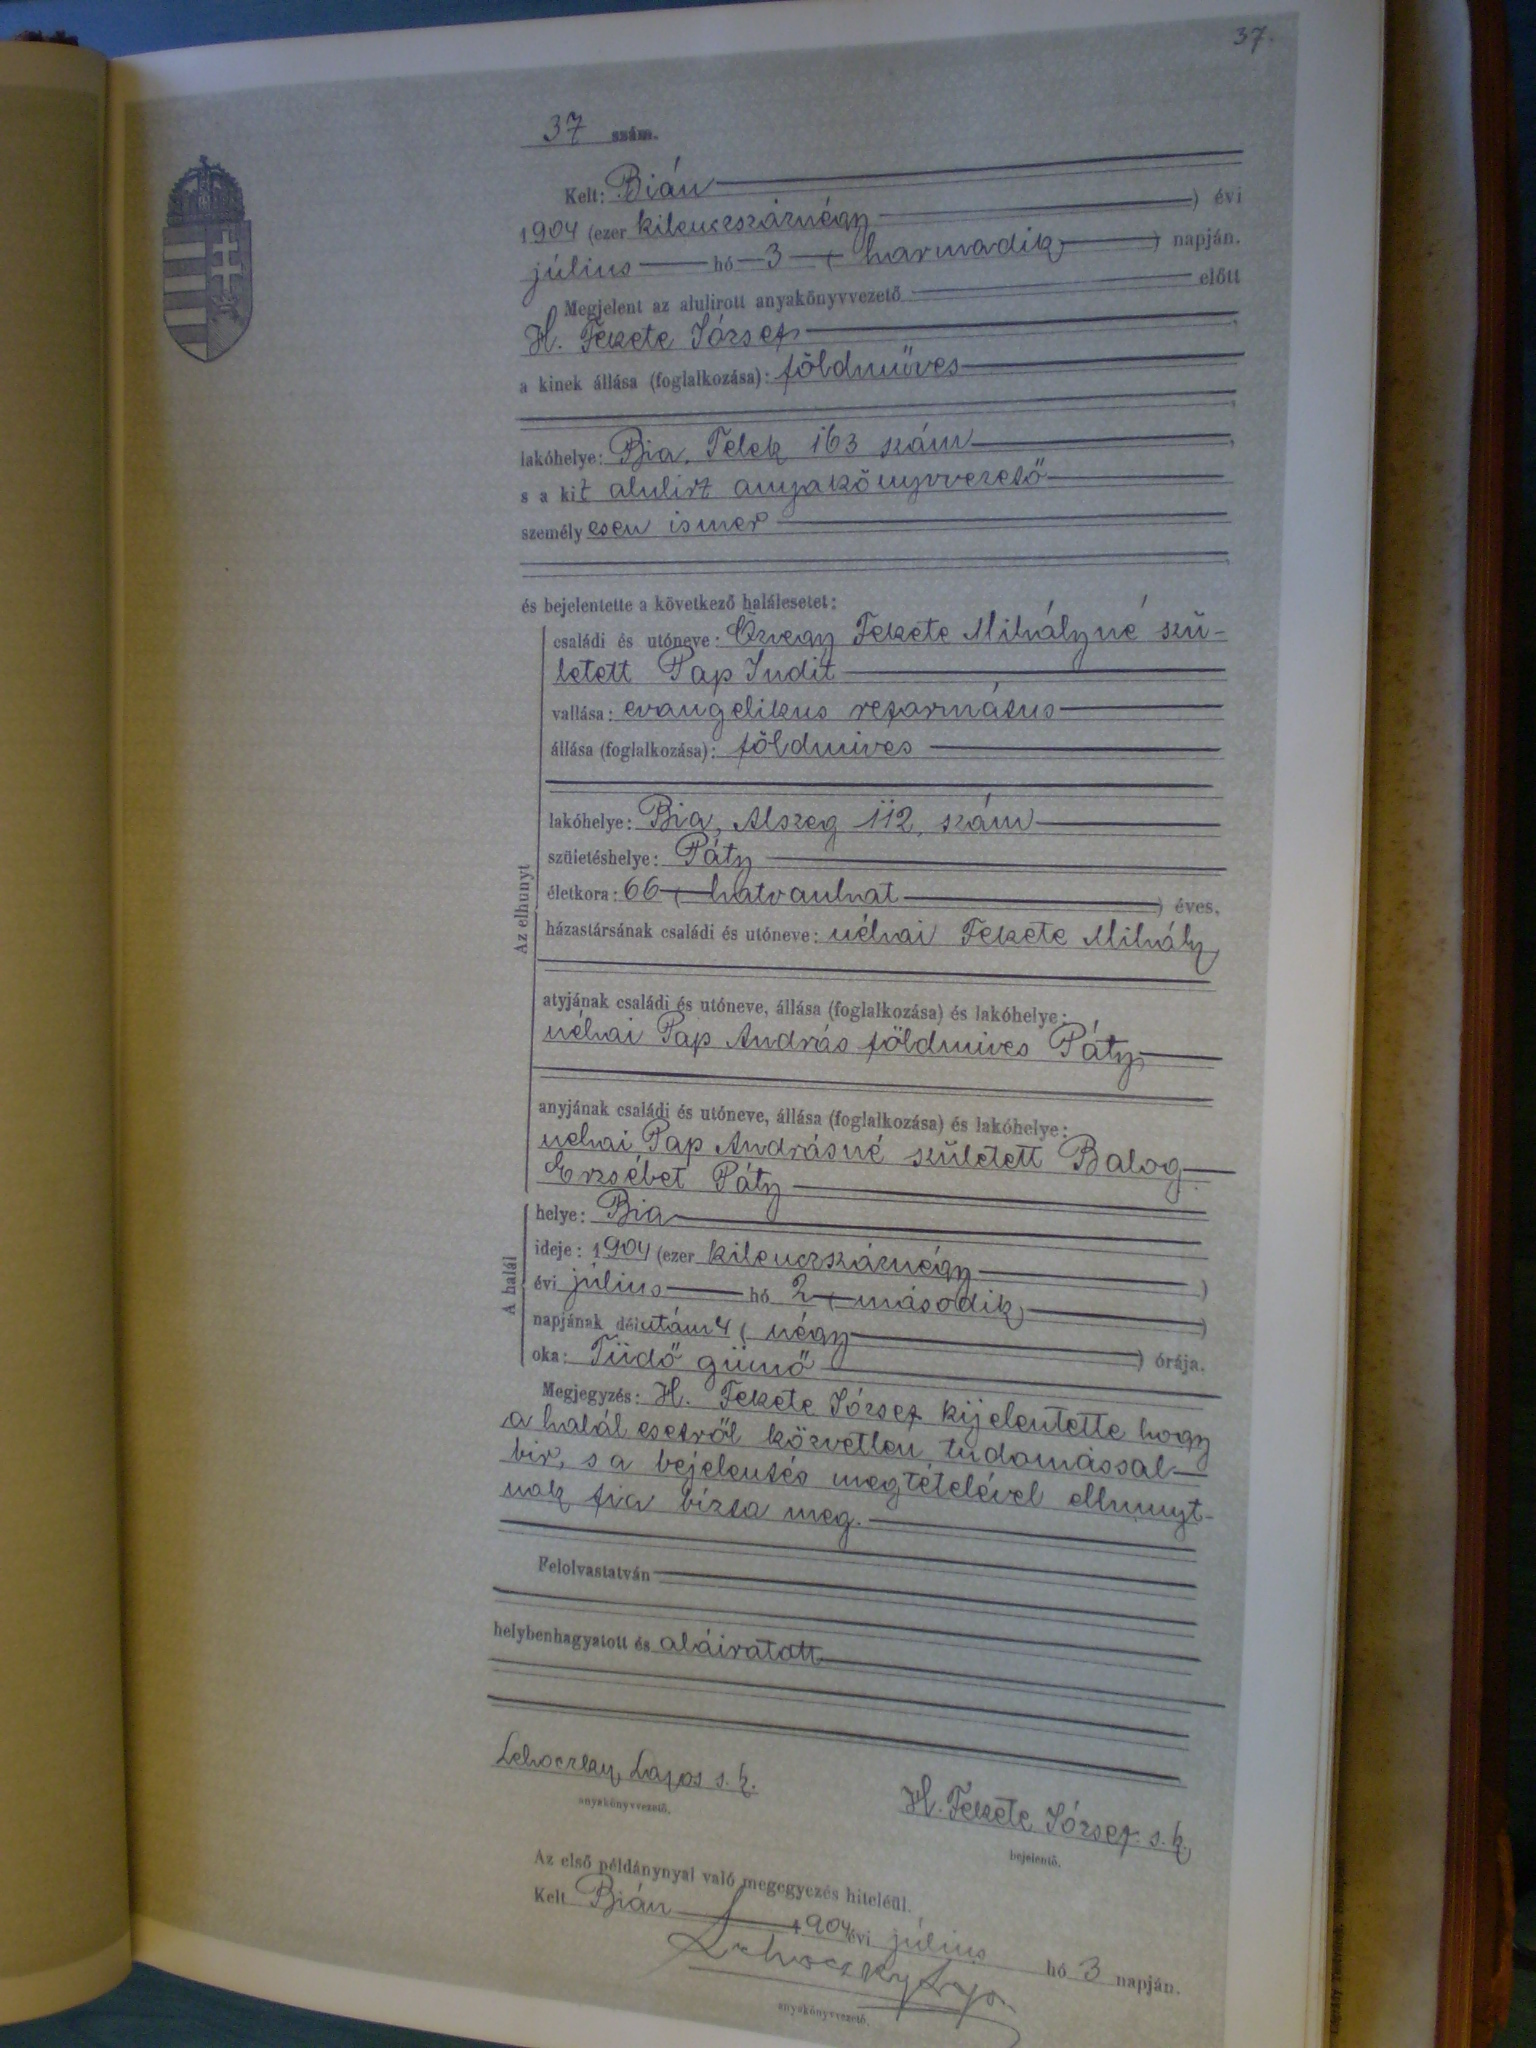 37.
37 szám.
Kelt: Bián
1904 (ezer kilenczszáznégy ) évi
július hó 3 ( harmadik ) napján.
Megjelent az alulirott anyakönyvvezető előtt
H. Fekete József
a kinek állása (foglalkozása): földmüves
lakóhelye: Bia, Telek 163 szám
s a kit alulirt anyakönyvvezető
személyesen ismer
és bejelentette a következő halálesetet:
Az elhunyt
családi és utóneve: Özvegy Fekete Mihályné szü-
letett Pap Judit
vallása: evangelikus református
állása (foglalkozása): földmives
lakóhelye: Bia, Alszeg 112, szám
születéshelye: Páty
életkora: 66 ( hatvanhat ) éves.
házastársának családi és utóneve: néhai Fekete Mihály
atyjának családi és utóneve, állása (foglalkozása) és lakóhelye:
néhai Pap András földmives Páty
anyjának családi és utóneve, állása (foglalkozása) és lakóhelye:
néhai Pap Andrásné született Balog
Erzsébet Páty
A halál
helye: Bia
ideje: 1904 (ezer kilenczszáznégy )
évi július hó 2 ( második )
napjának délután 4 ( négy ) órája.
oka: Tüdő gümő
Megjegyzés: H. Fekete József kijelentette hogy
a halál esetről közvetlen tudomással
bir, s a bejelentés megtételével elhunyt-
nak fia bízta meg.
Felolvastatván
helybenhagyatott és aláiratott
Lehoczky Lajos s. k.
anyakönyvvezető.
H. Fekete József s. k.
bejelentő.
Az első példánynyal való megegyezés hiteléül.
Kelt Bián 1904 évi július hó 3 napján.
Lehoczky Lajos
anyakönyvvezető.